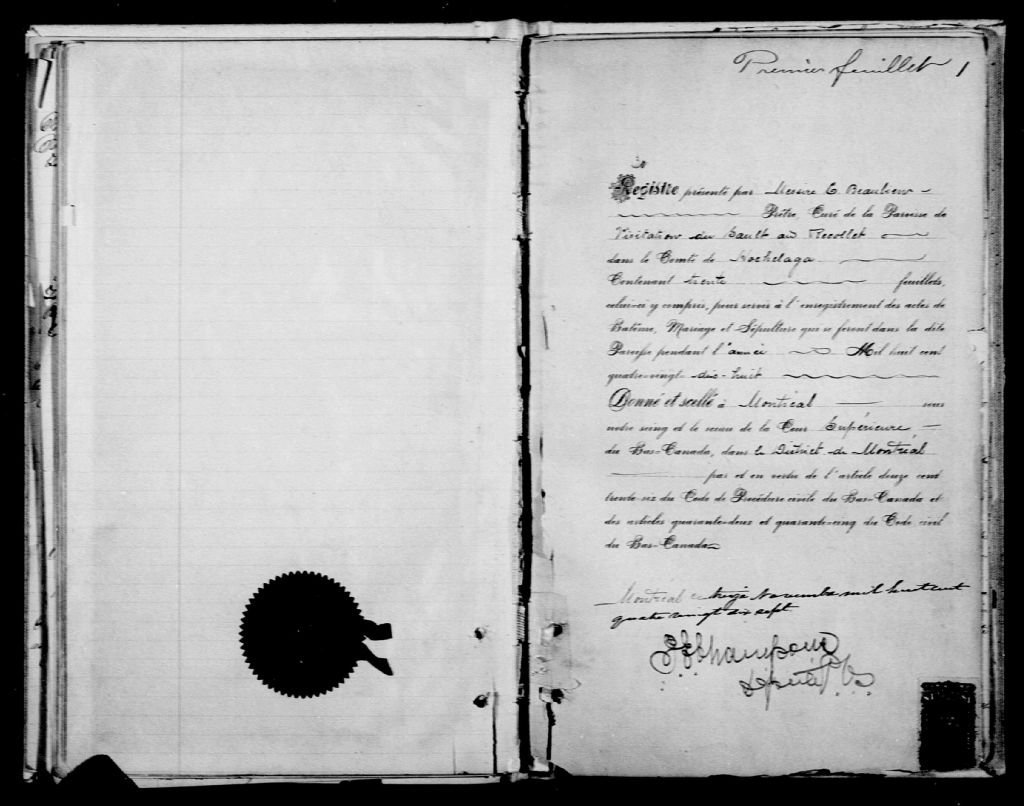 Premier feuillet 1
Registre présenté par Messire C. Beaubien
Prêtre, Curé de la Paroisse de
Visitation du Sault au Recollet
dans le Comté de Hochelaga
Contenant trente feuillets,
celui-ci y compris, pour servir à l'enregistrement des actes de
Batême, Mariage et Sépulture qui se feront dans la dite
Paroisse pendant l'année Mil huit cent
quatre-vingt-dix-huit
Donné et scellé à Montréal sous
notre seing et le sceau de la Cour Supérieure
du Bas-Canada, dans le District de Montréal
par et en vertu de l'article douze cent
trente-six du Code de Procédure civile du Bas-Canada et
des articles quarante-deux et quarante-cinq du Code civil
du Bas-Canada
Montréal ce treize Novembre mil huit cent
quatre vingt dix sept